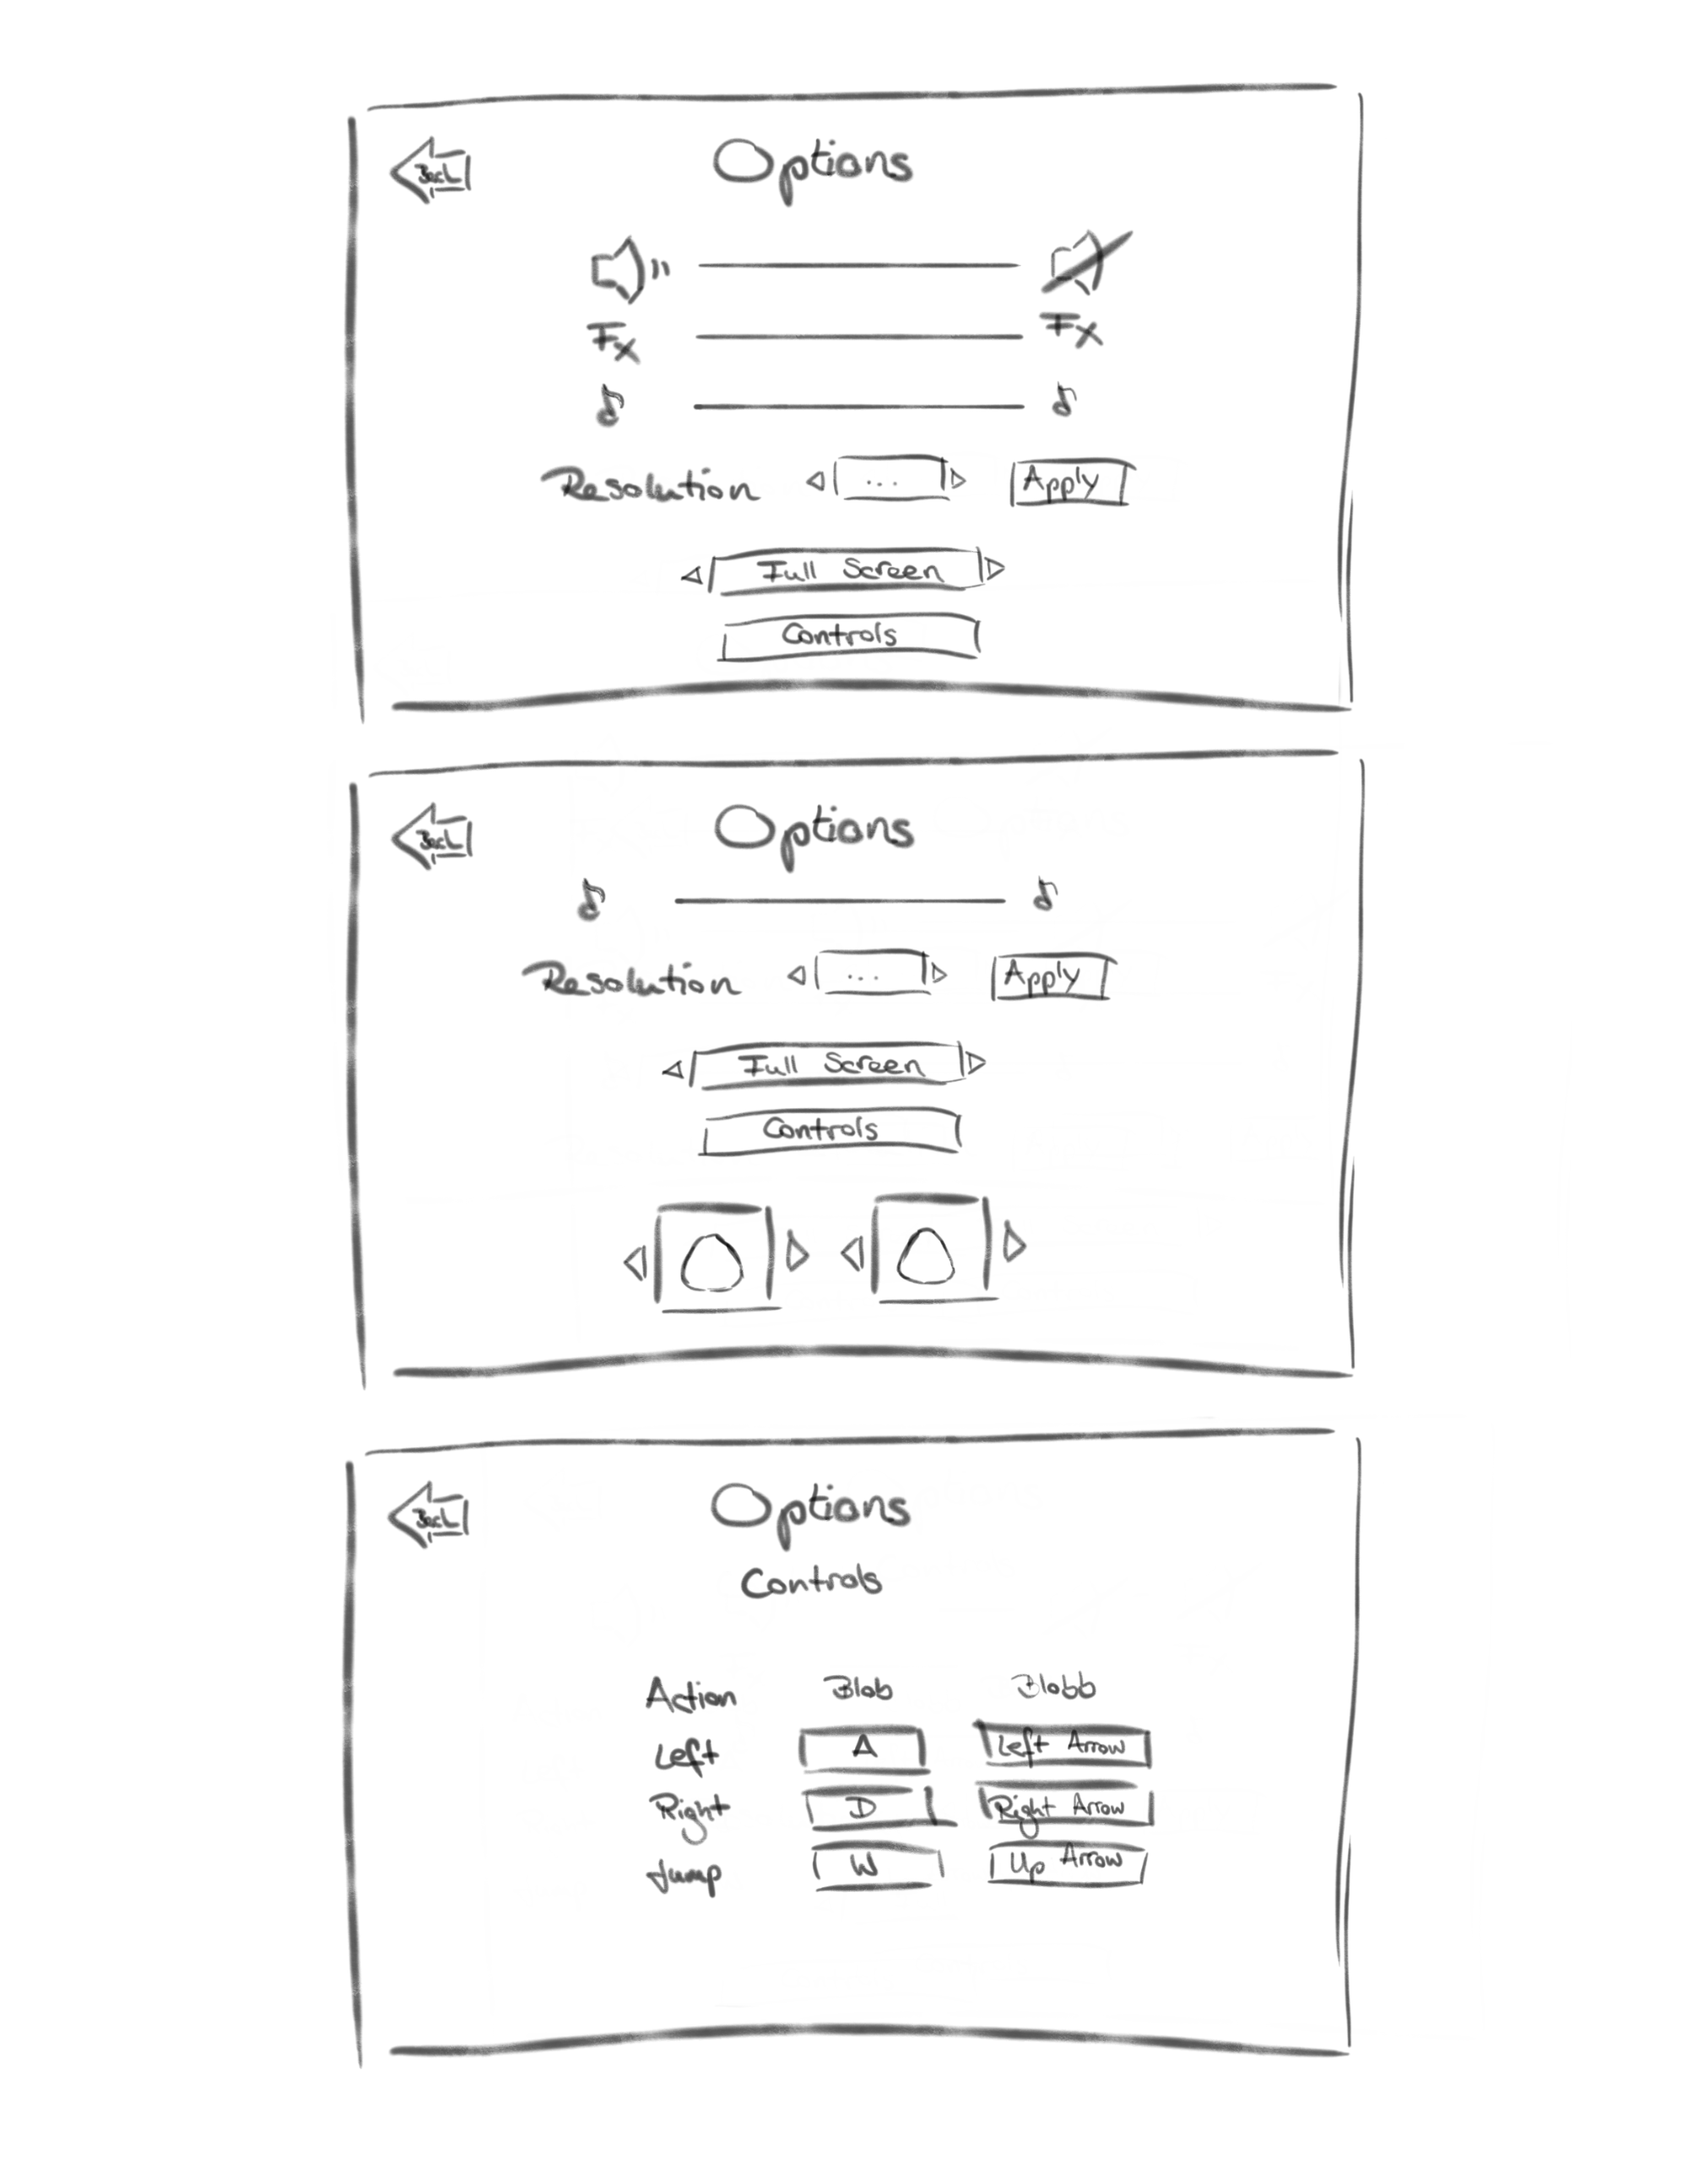 Back Options
Fx Fx
Resolution ... Apply
Full Screen
Controls
Back Options
Resolution ... Apply
Full Screen
Controls
Back Options
Controls
Action Blob Blobb
Left A Left Arrow
Right D Right Arrow
Jump W Up Arrow